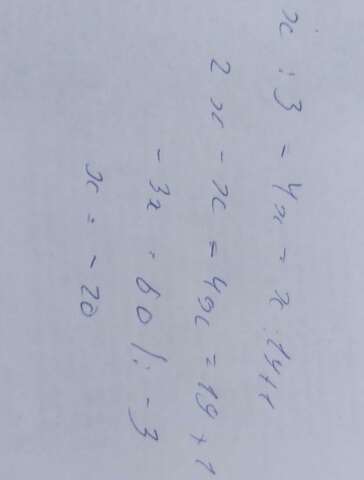 x : 3 = 4x = x : 19 + 1
2 x - x = 4x = 19 + 1
- 3x = 60 / : - 3
x = - 20